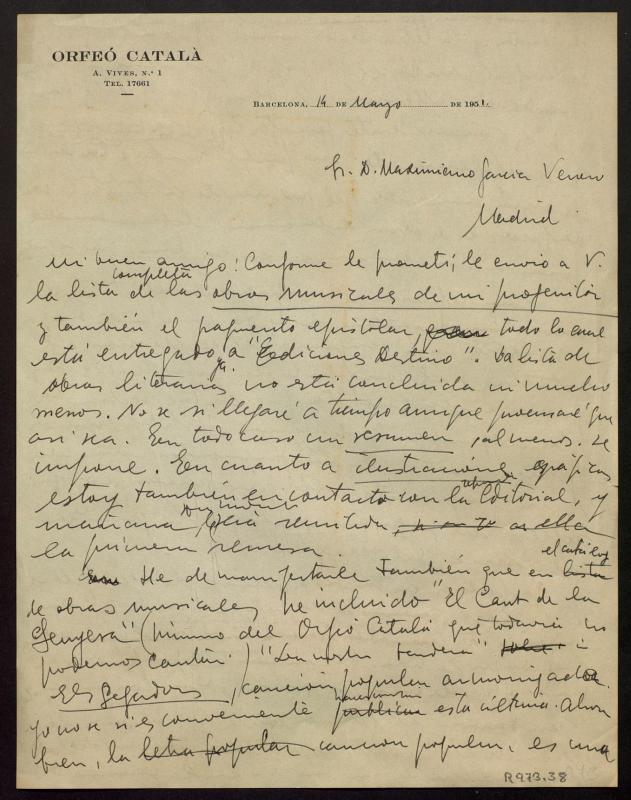 ORFEÓ CATALÀ
A. VIVES, N.º 1
TEL. 17661
BARCELONA, 14 DE Marzo DE 1951.
Sr. D. Maximiano Garcia Venero
Madrid
Mi buen amigo: Conforme le prometí, le envio a V.
completa
la lista de las obras musicales de mi progenitor
y también el fragmento epistolar, todo lo cual
está entregado ya a "Ediciones Destino". La lista de
obras literarias no está concluida ni mucho
menos. No se si llegaré a tiempo aunque procuraré que
asi sea. En todo caso un resumen, al menos, se
impone. En cuanto a ilustraciónes gráficas
estoy también en contacto con la referida Editorial, y
mañana será remitida a ella
la primera remesa.
He de manifestarle también que en el catálogo
de obras musicales he incluido "El Cant de la
Senyera" (himno del Orfeó Català que todavia no
podemos cantar) "La nostra bandera" i
Els Segadors, canción popular armonizada.
Yo no se si es conveniente mencionar esta última. Ahora
bien, la letra popular canción popular, es una
R973.38